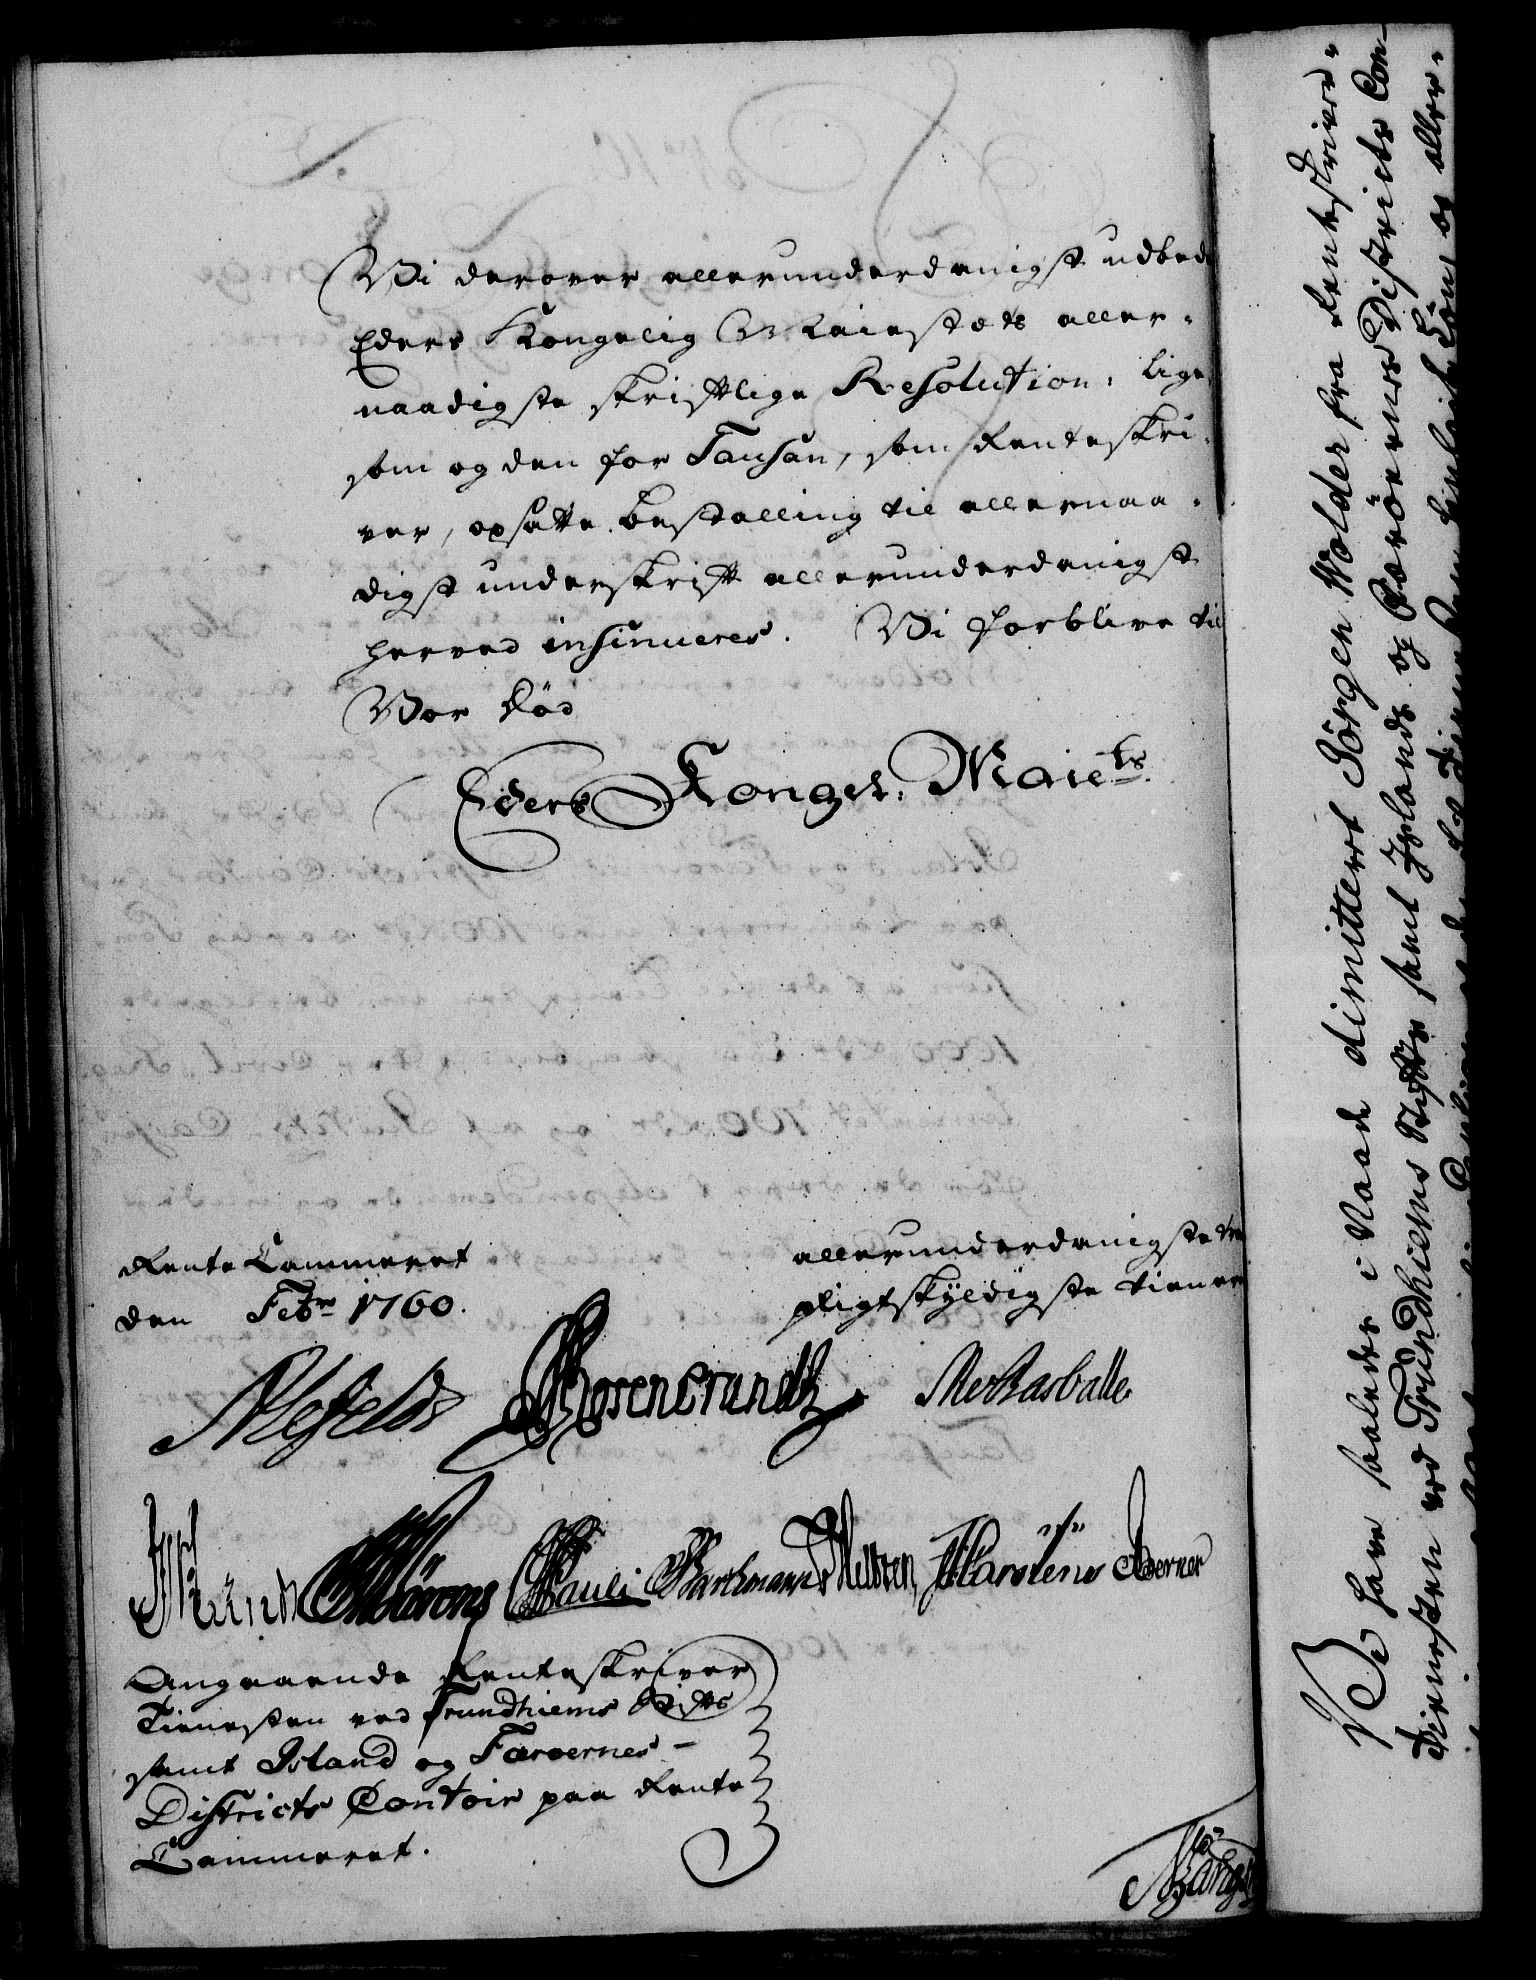 Vi derover allerunderdanigst udbede
Eders Kongelig Maiestæts aller-
naadigste skriftlige Resolution, lige-
som og den for Tausan, som Renteskri-
ver, opsatte bestalling til allernaa-
digst underskrift allerunderdanigst
herved insinueres. Vi forblive til
Vor Död
Eders Kongel: Maiets.
Rente Cammeret
den Febr 1760.
allerunderdanigste
pligtskyldigste tienere
Ahlefeldt Rosencrandtz
Möröng Pauli Barthmann Carstens Berner
Angaaende Renteskriver
Tienesten ved Trundhiems Stifts
samt Island og Færoernes
Districts Contoir paa Rente
Cammeret.
Vi have saaledes i Naade dimitteret Jörgen Wolder fra Renteskriver-
Tienesten ved Trundhiems Stifts samt Islands og Færöernes Districts Con-